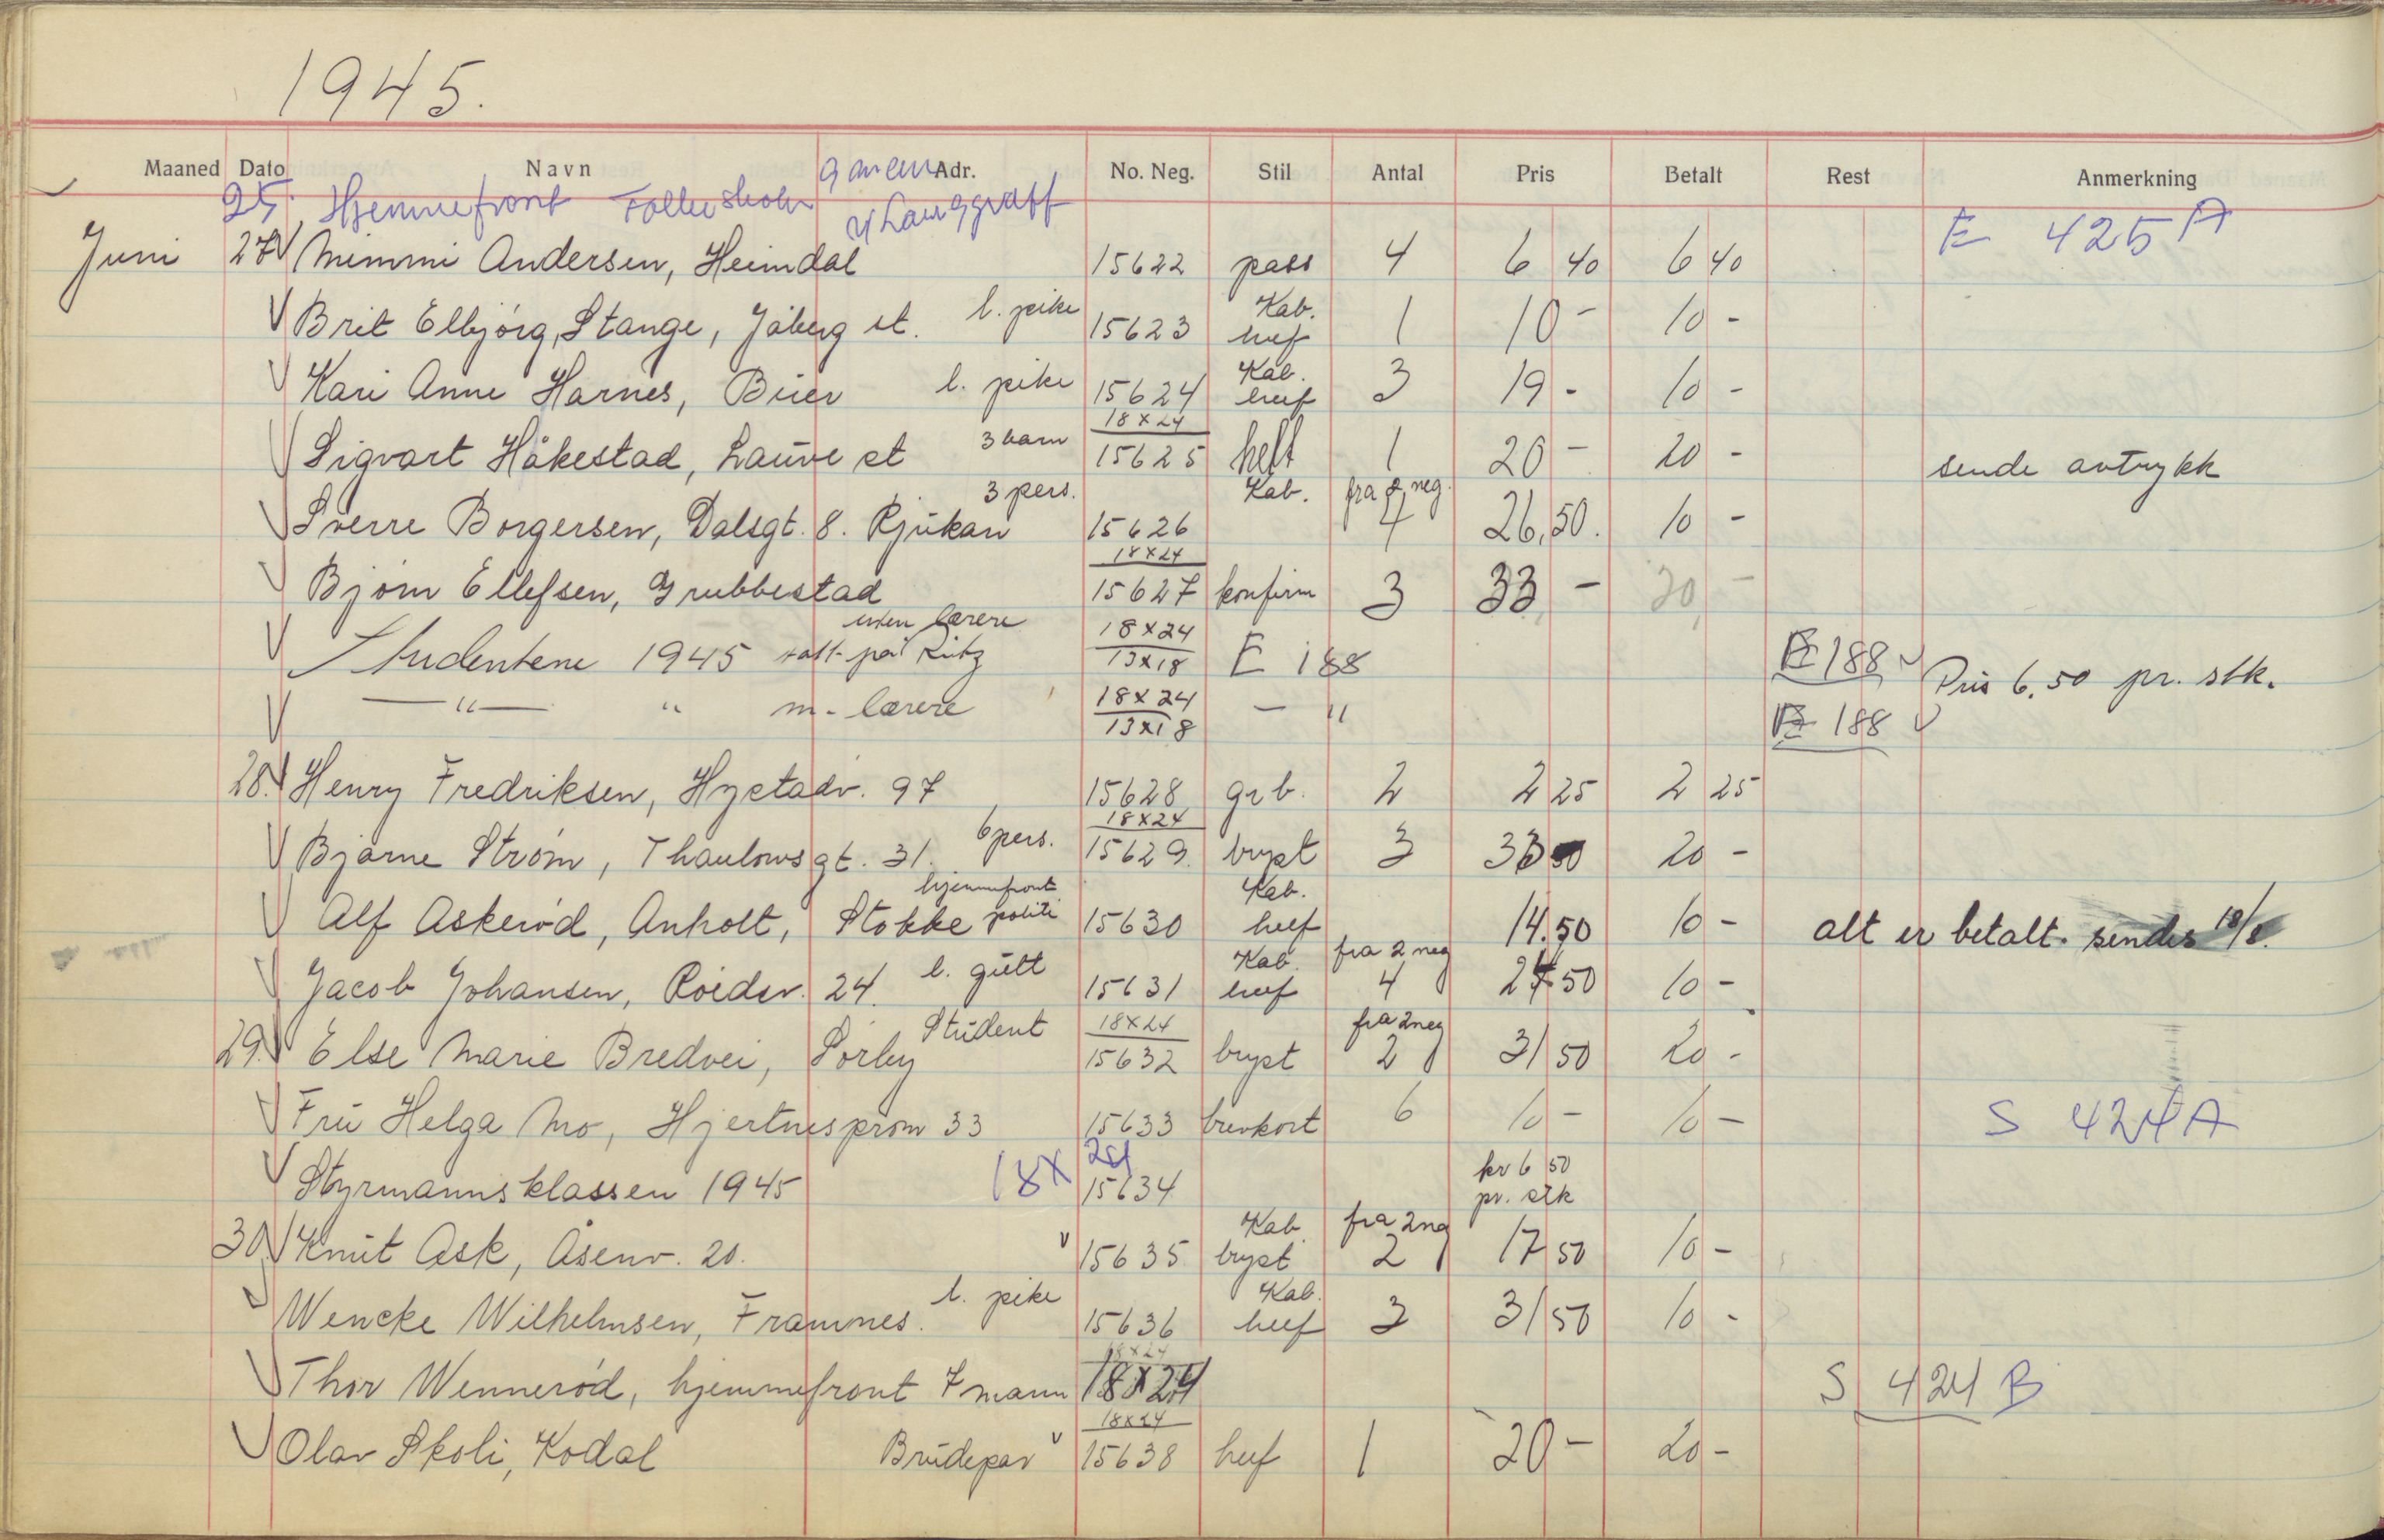 1945.
Maaned Dato Navn Adr. No. Neg. Stil Antal Pris Betalt Rest Anmerkning
25. Hjemmefront E 425 A
Juni 27 Mimmi Andersen, Heimdal 15622 pass 4 6 40 6 40
Brit Elbjörg, Stange, Jåberg st. l. pike 15623 Kab. 1 10 - 10 -
Kari Anne Harnes, l. pike 15624 Kab. 3 19 - 10 -
Sigvart Håkestad, Lauve st 3 barn 18 x 24 15625 helt 1 20 - 20 - sende avtrykk
Sverre Borgersen, Dalsgt. 8. Rjukan 3 pers. 15626 Kab. fra 2 neg. 4 26,50. 10 -
Bjørn Ellefsen, Grubbestad 18x24 15627 konfirm 3 33 - 20 -
Studentene 1945 tatt på Ritz uten lærere 18 x 24 13x18 E 188 E 188 Pris 6.50 pr. stk.
— " — " m. lærere 18 x 24 13x18 — " E 188
28. Henry Fredriksen, Hystadv. 97 15628 grb. 2 2 25 2 25
Bjarne Strøm, Thaulowsgt. 31. 6 pers. 18x24 15629 bryst 3 33 20 -
Alf Askerød, Anholt, Stokke hjemmefront politi 15630 Kab. 14.50 10 - alt er betalt. sendes
Jacob Johansen, 24. l. gutt 15631 Kab. fra 2 neg 4 50 10 -
29. Else Marie Bredvei, Sörby Student 18x24 15632 bryst fra 2 neg 2 31 50 20 -
Fru Helga Mo, Hjertnesprom 33 15633 brevkort 6 10 - 10 - S 424 A
Styrmannsklassen 1945 18 x 24 15634 kr 6 50 pr. stk
30. Knut Ask, Åsenv. 20. 15635 Kab. bryst fra 2 neg 2 17 50 10 -
Wencke Wilhelmsen, Framnes. l. pike 15636 Kab. 3 31 50 10 -
Thor Wennerød, hjemmefront 7 mann 18x24 S 424 B
Olav Skoli, Kodal Brudepar 18x24 15638 1 20 - 20 -